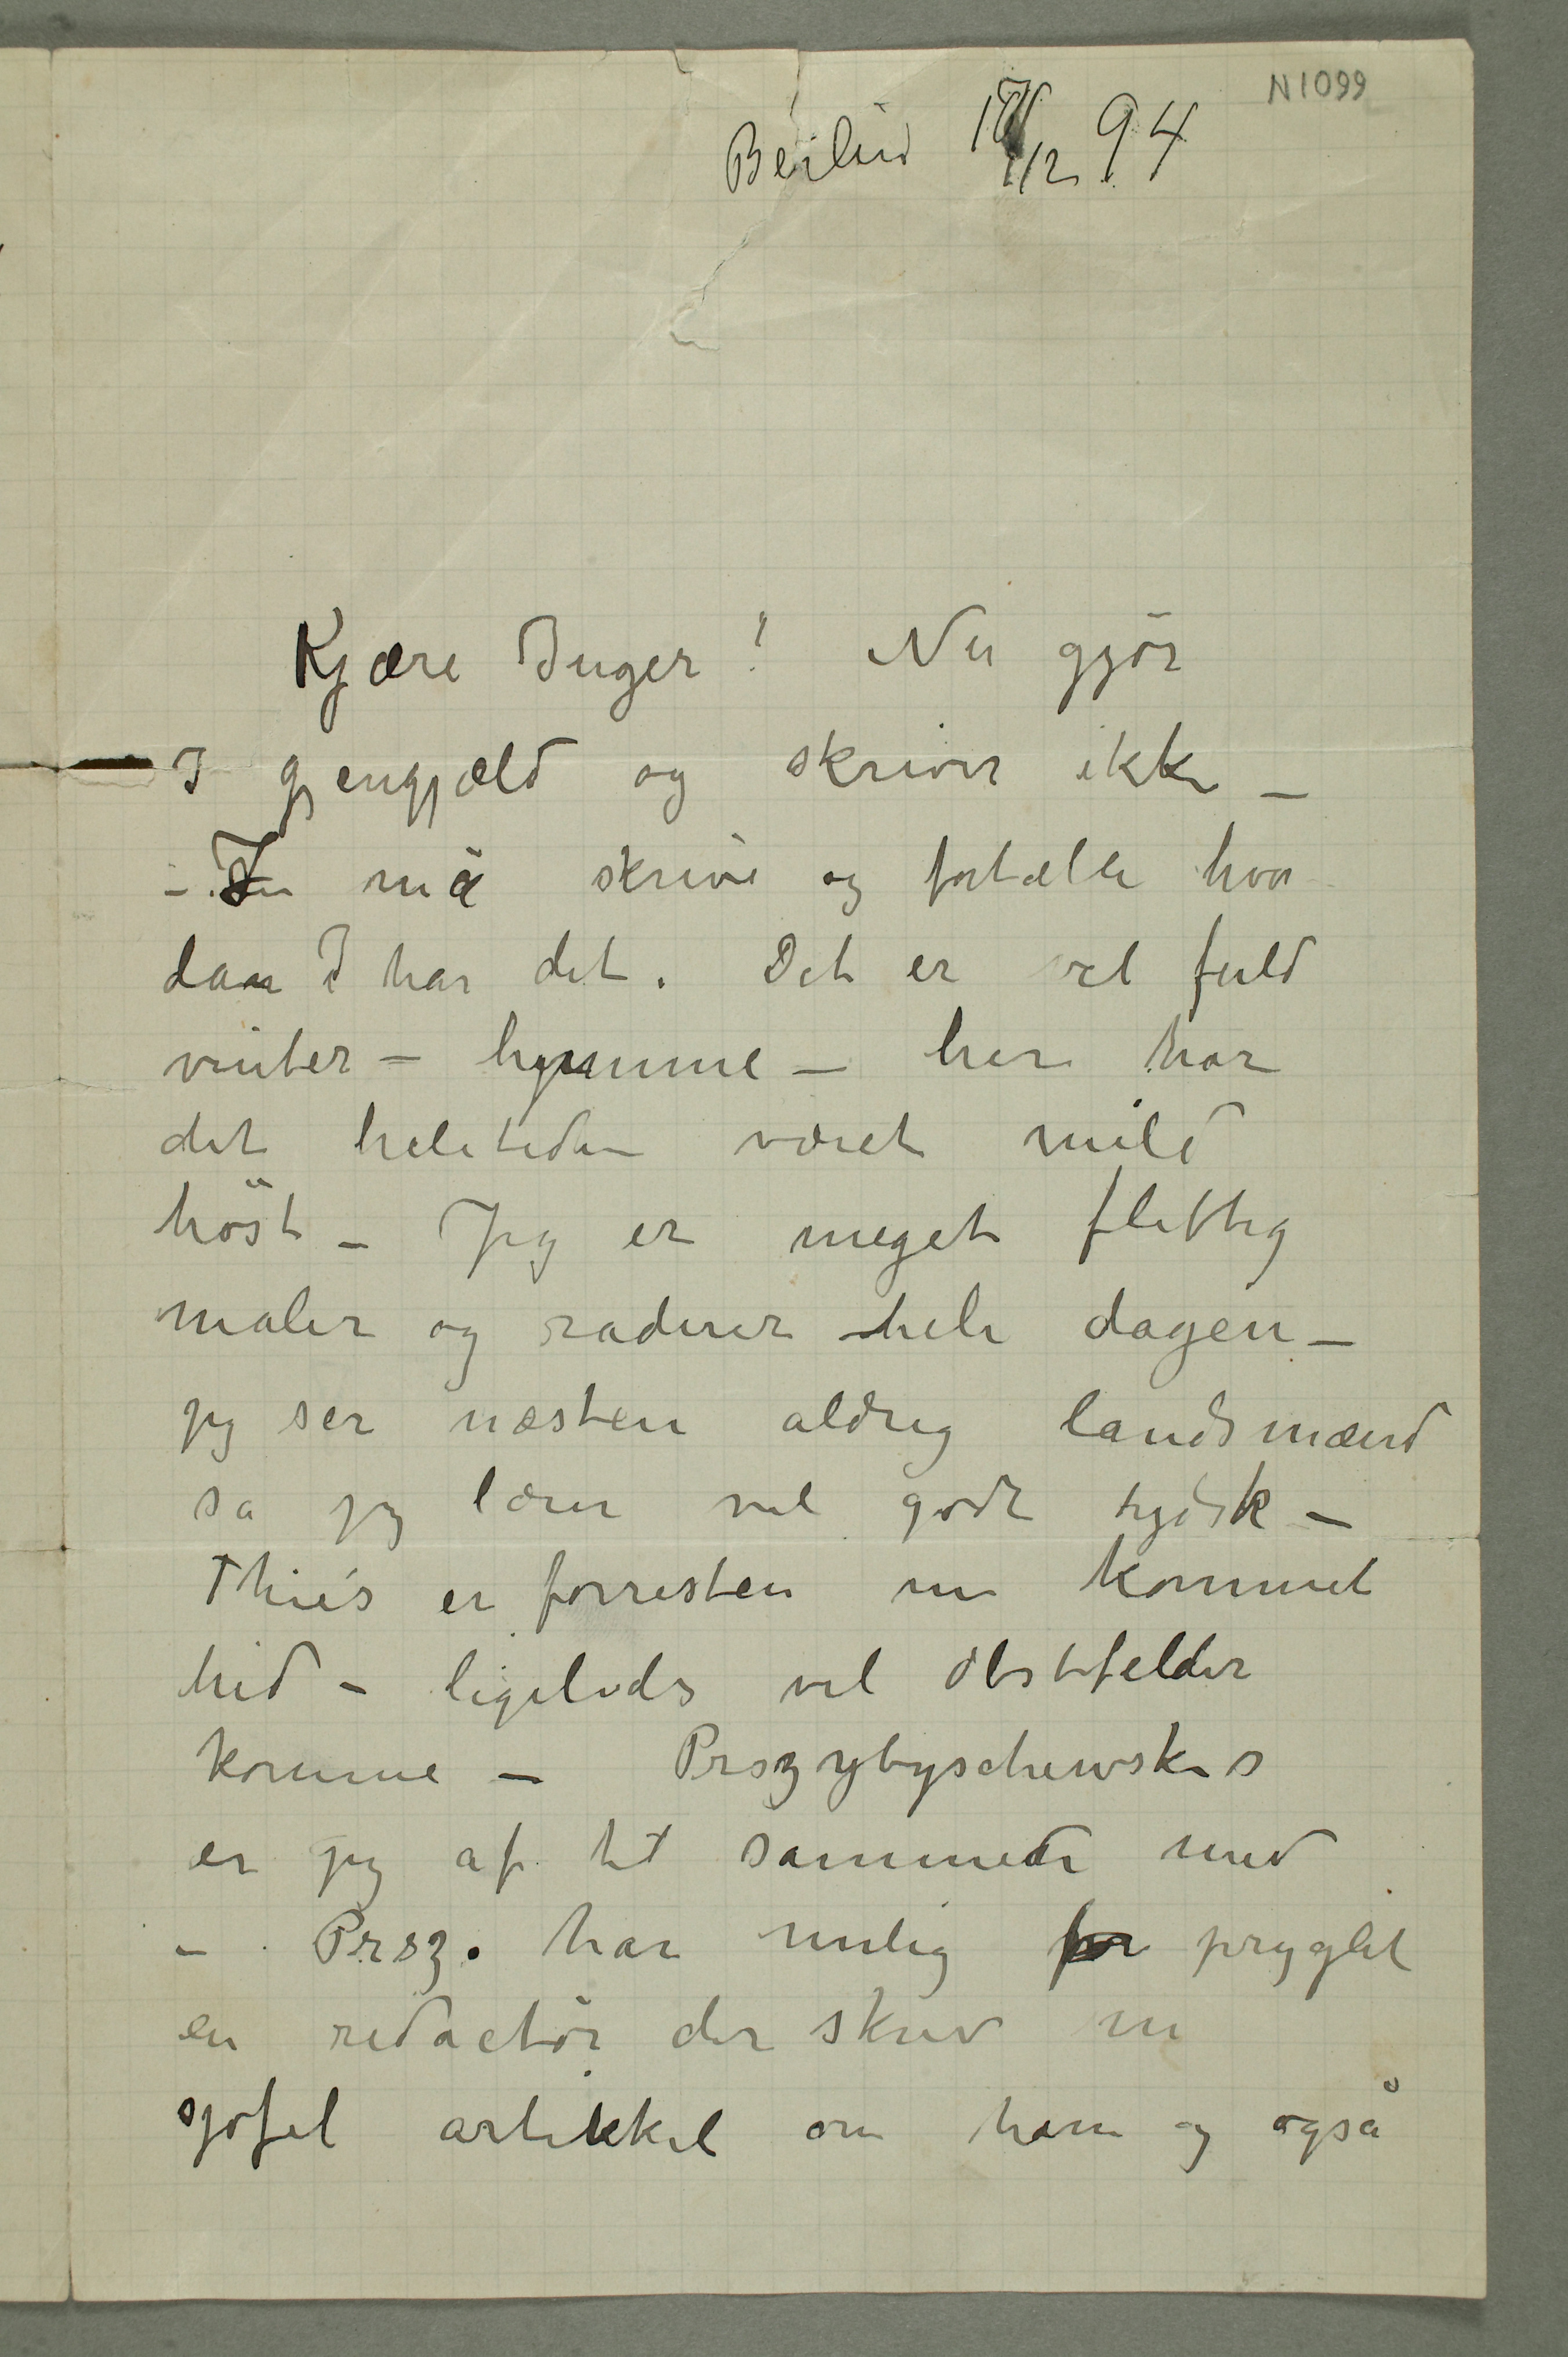 N 1099
Berlin 12 94
Kjære Inger! Nu gjör
I gjengjæld og skriver ikke –
– Du må skrive og fortælle hvor
dan I har det. Det er vel fuld
vinter – hjemme – her har
det heletiden været mild
höst – Jeg er meget flittig
maler og raderer hele dagen –
jeg ser næsten aldrig landsmænd
så jeg lærer vel godt tydsk –
Thiis er forresten nu kommet
hid – ligeledes vel Obstfelder
komme – Prszybyschewskis
er jeg af til sammen med
– Prsz. har nylig pryglet
en redactör der skrev en
sjofel artikkel om ham og også